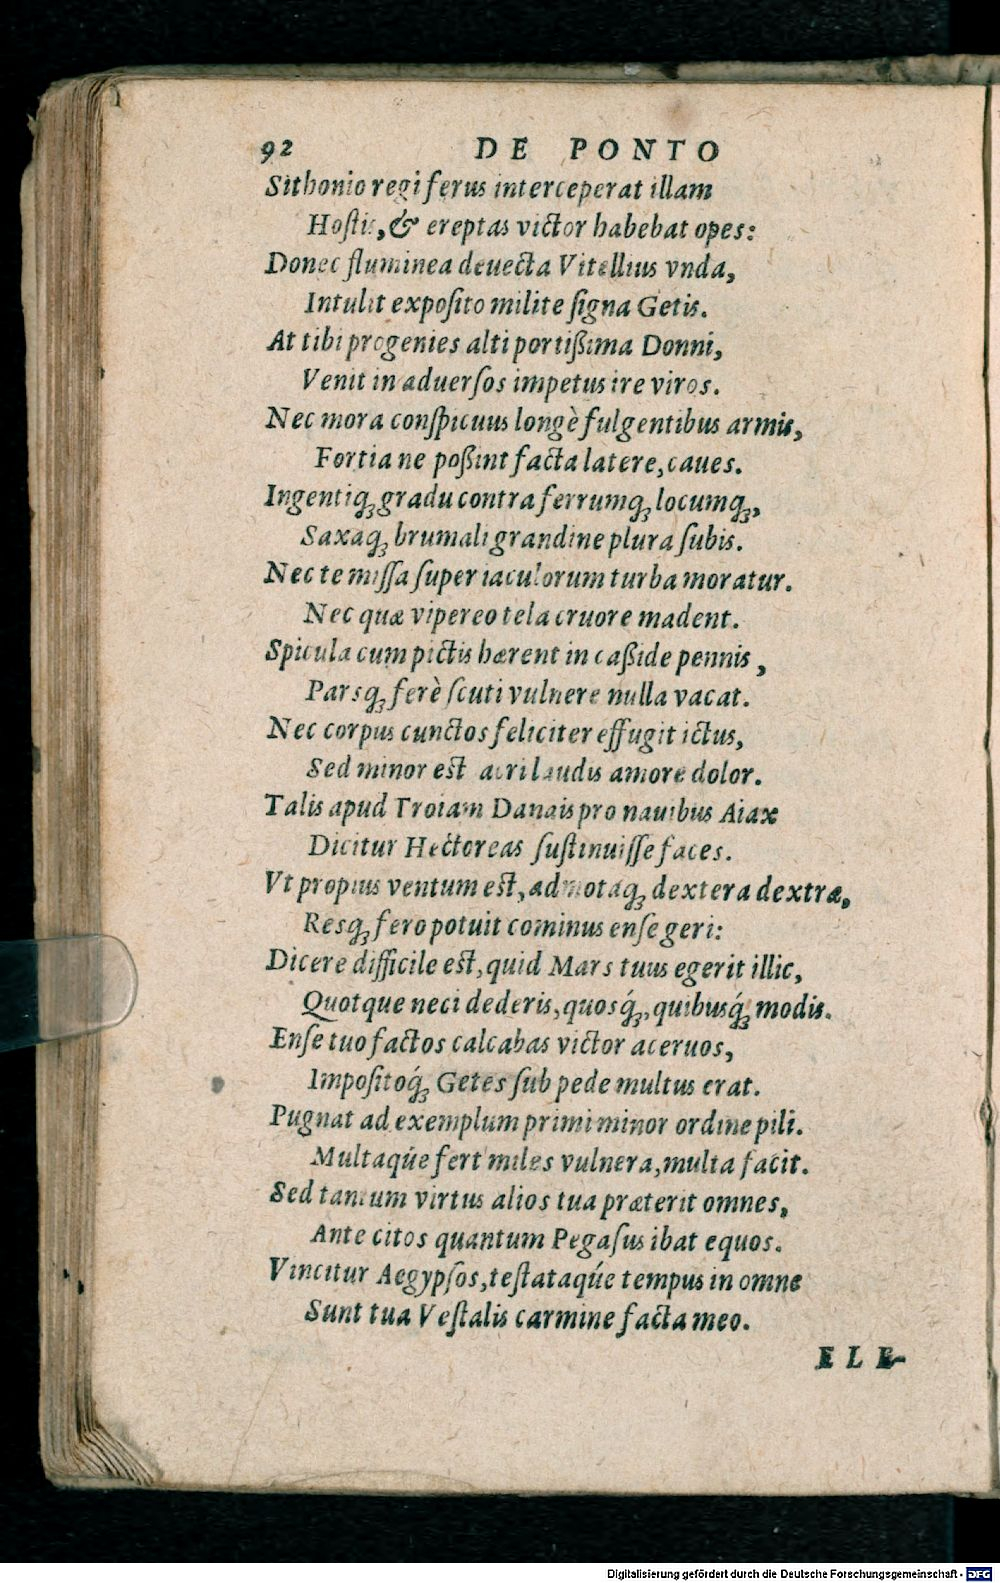 92 DE PONTO
Sithonio regi ferus interceperat illam
Hostis, & ereptas victor habebat opes:
Donec fluminea deuecta Vitellius vnda,
Intulit exposito milite signa Getis.
At tibi progenies alti portißima Donni,
Venit in aduersos impetus ire viros.
Nec mora conspicuus longè fulgentibus armis,
Fortia ne poßint facta latere, caues.
Ingentiq́ꝫ gradu contra ferrumqꝫ locumqꝫ,
Saxaqꝫ brumali grandine plura subis.
Nec te missa super iaculorum turba moratur.
Nec quæ vipereo tela cruore madent.
Spicula cum pictis hærent in caßide pennis,
Parsqꝫ ferè scuti vulnere nulla vacat.
Nec corpus cunctos feliciter effugit ictus,
Sed minor est acri laudis amore dolor.
Talis apud Troiam Danais pro nauibus Aiax
Dicitur Hectoreas sustinuisse faces.
Vt propius ventum est, admotaqꝫ dextera dextræ,
Resqꝫ fero potuit cominus ense geri:
Dicere difficile est, quid Mars tuus egerit illic,
Quotque neci dederis, quosq́ꝫ, quibusq́ꝫ modis.
Ense tuo factos calcabas victor aceruos,
Impositoq́ꝫ Getes sub pede multus erat.
Pugnat ad exemplum primi minor ordine pili.
Multaq́ue fert miles vulnera, multa facit.
Sed tantum virtus alios tua præterit omnes,
Ante citos quantum Pegasus ibat equos.
Vincitur Aegypsos, testataq́ue tempus in omne
Sunt tua Vestalis carmine facta meo.
ELE-
Digitalisierung gefördert durch die Deutsche Forschungsgemeinschaft - DFG